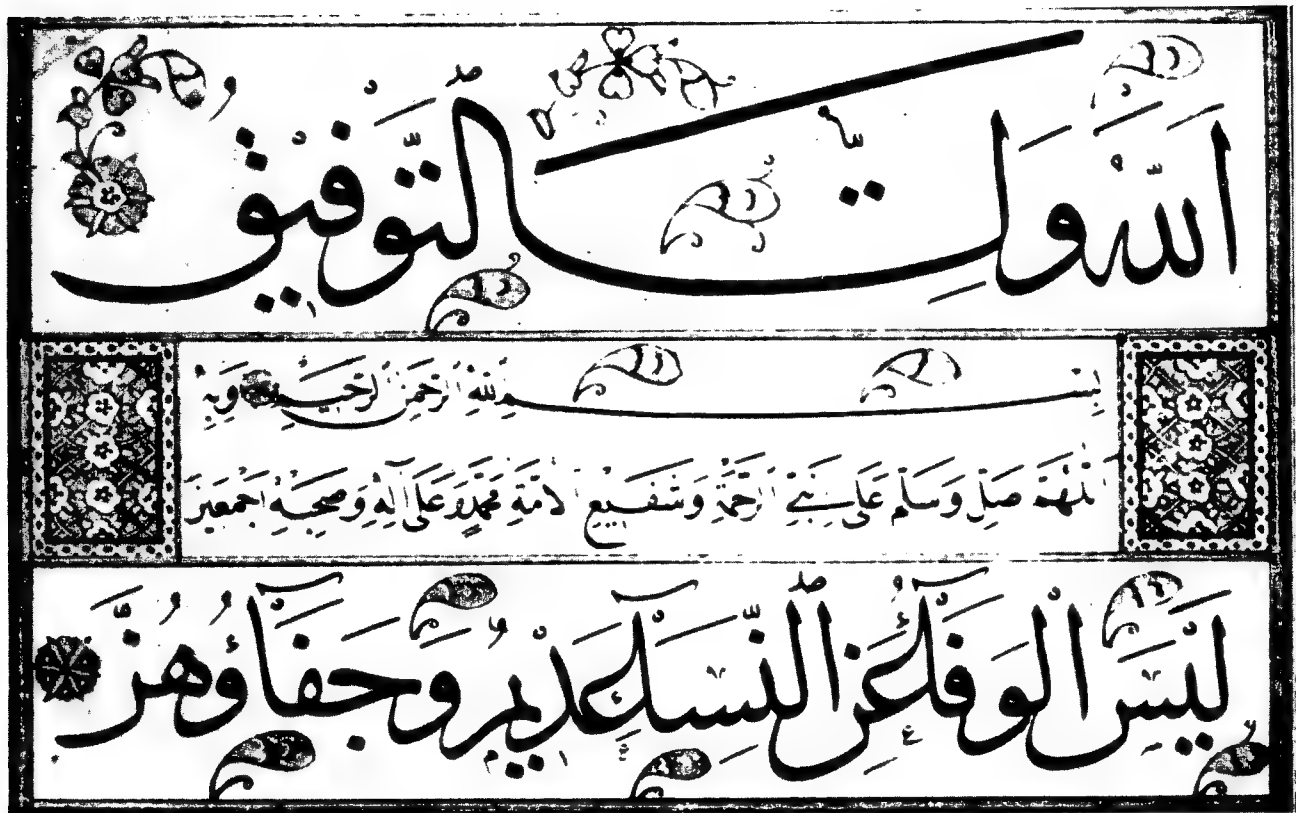 الله ولي التوفيق
بسم الله الرحمن الرحيم وبه
اللهم صل وسلم على نبي الرحمة وشفيع الامة محمد وعلى آله وصحبه اجمعين
ليس الوفآء عن النسآء عديم وجفآؤهن